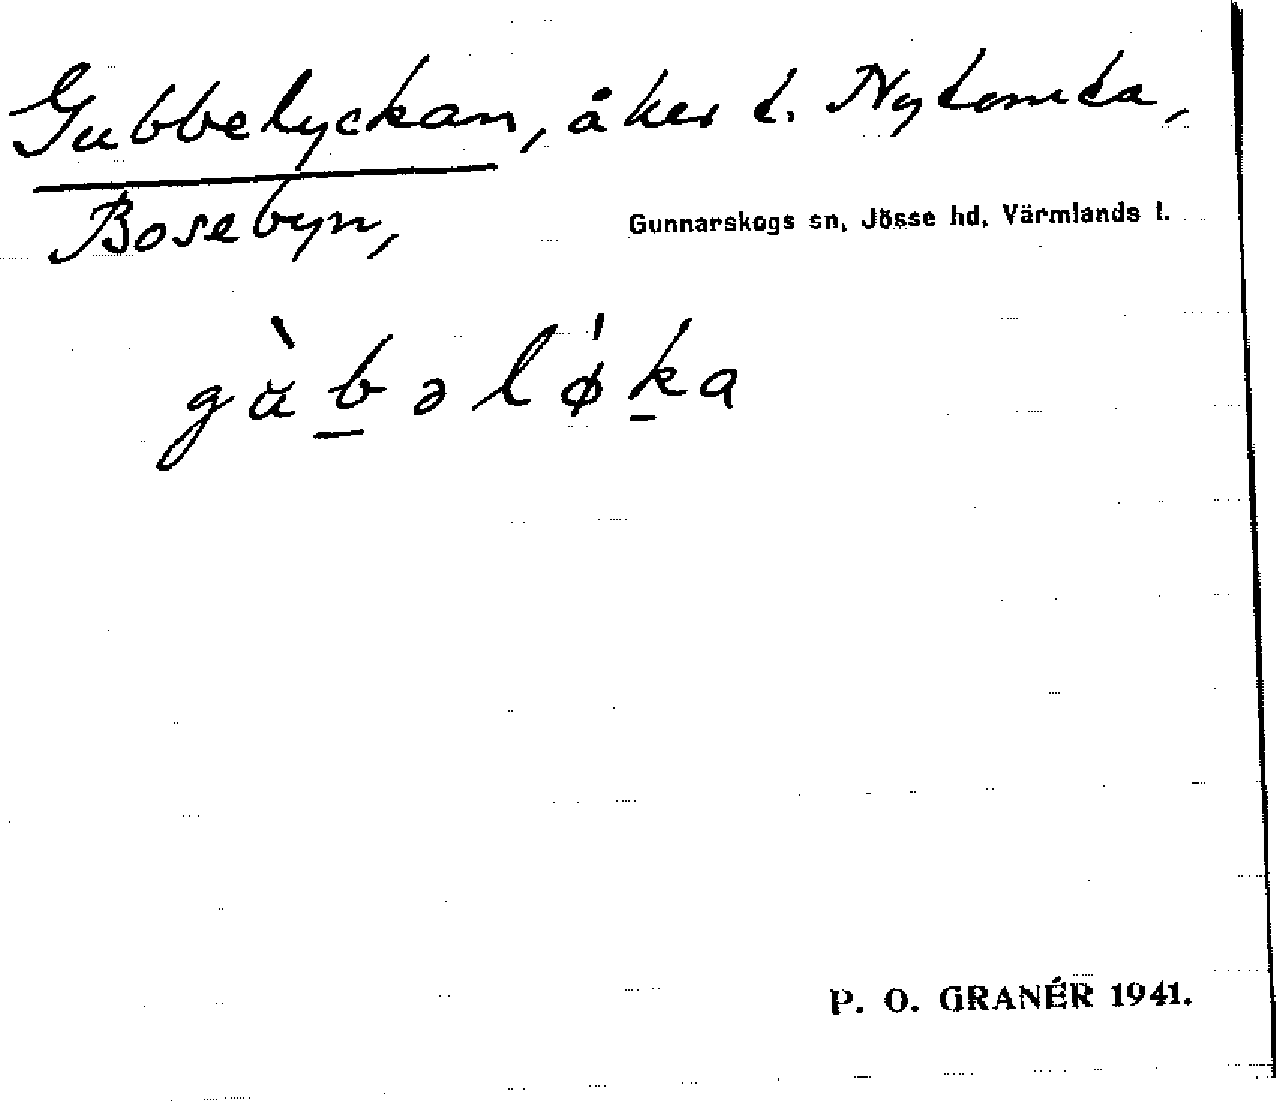 Gubbelyckan, åker t. Nytomta,
Bosebyn,
Gunnarskogs sn, Jösse hd, Värmlands l.
gàbəløka
P. O. GRANÉR 1941.